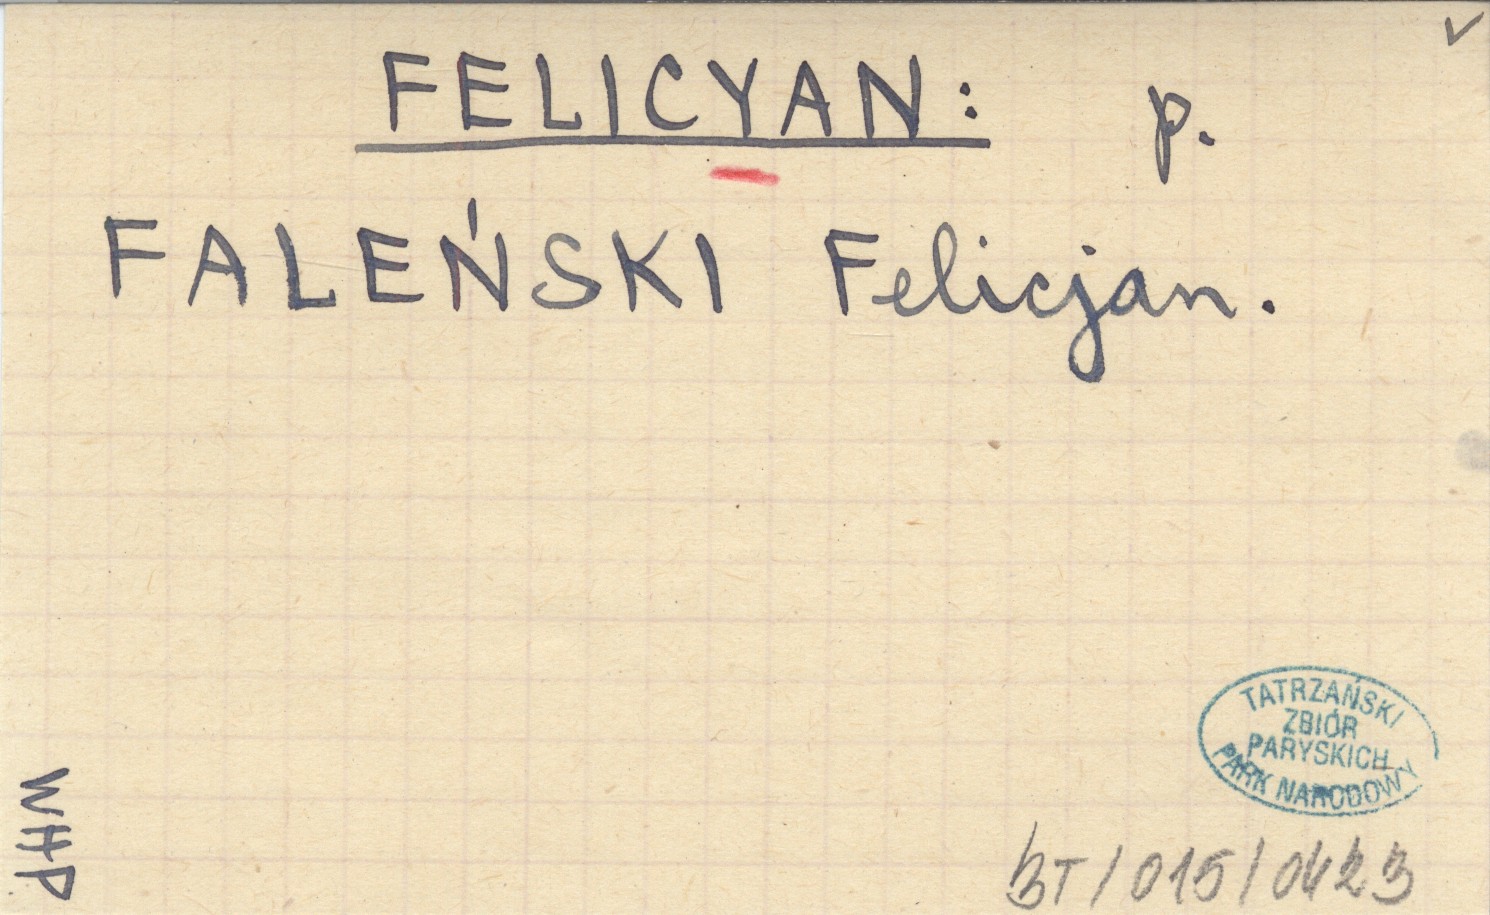 FELICYAN: p.
FALEŃSKI Felicjan.
TATRZAŃSKI
ZBIÓR
PARYSKICH
PARK NARODOWY
WHP
BT/015/0423